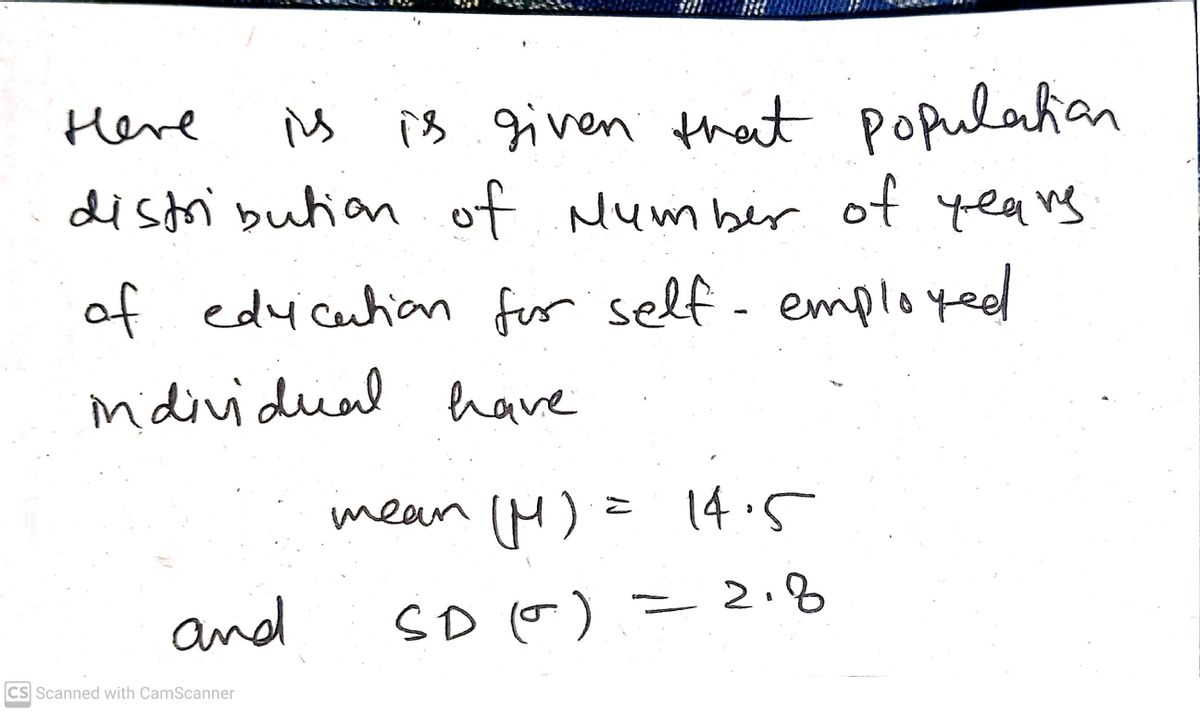 Here is is given that population
distribution of Number of years
of education for self-employed
individual have
mean (μ) = 14.5
and SD (σ) = 2.8
CS Scanned with CamScanner